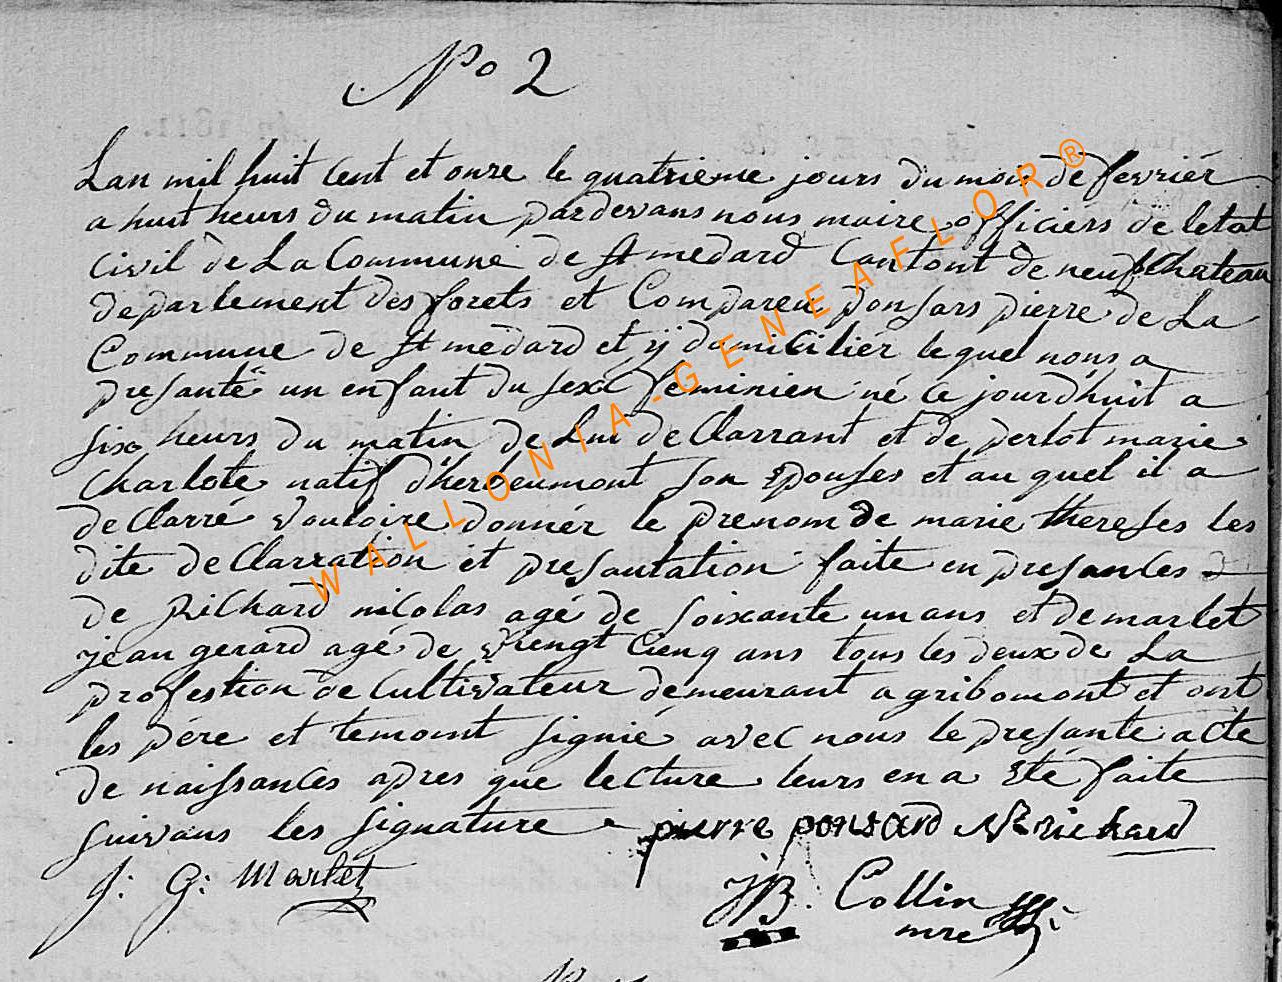 No 2
Lan mil huit Cent et onze le quatrieme jours du mois de fevriér
a huit heurs du matin pardevans nous maire officiers de letat
Civil de La Commune de st medard Cantont de neufchateau
departement des forets et Compareu ponsars pierre de La
Commune de st medard et ÿ domicilier lequel nous a
presanté un enfant du sexe feminien né ce jourdhuit a
six heurs du matin de Lui declarrant et de perlot marie
Charlote natif d'herbeumont son Epouses et au quel il a
declarré vouloire donnér le prenom de marie thereses les
dite declarration et presantation faite en presances
de Richard nicolas agé de soixante un ans et de marlet
jean gerard agé de viengt Cienq ans tous les deux de La
profestion de Cultivateur demeurant a gribomont et ont
les pére et temoint signié avec nous le presante acte
de naissances apres que lecture leurs en a Eté faite
suivans les signature pierre ponsard N richard
J: G: Marlet
JB. Collin
mre
WALLONIA-GENEAFLOR®